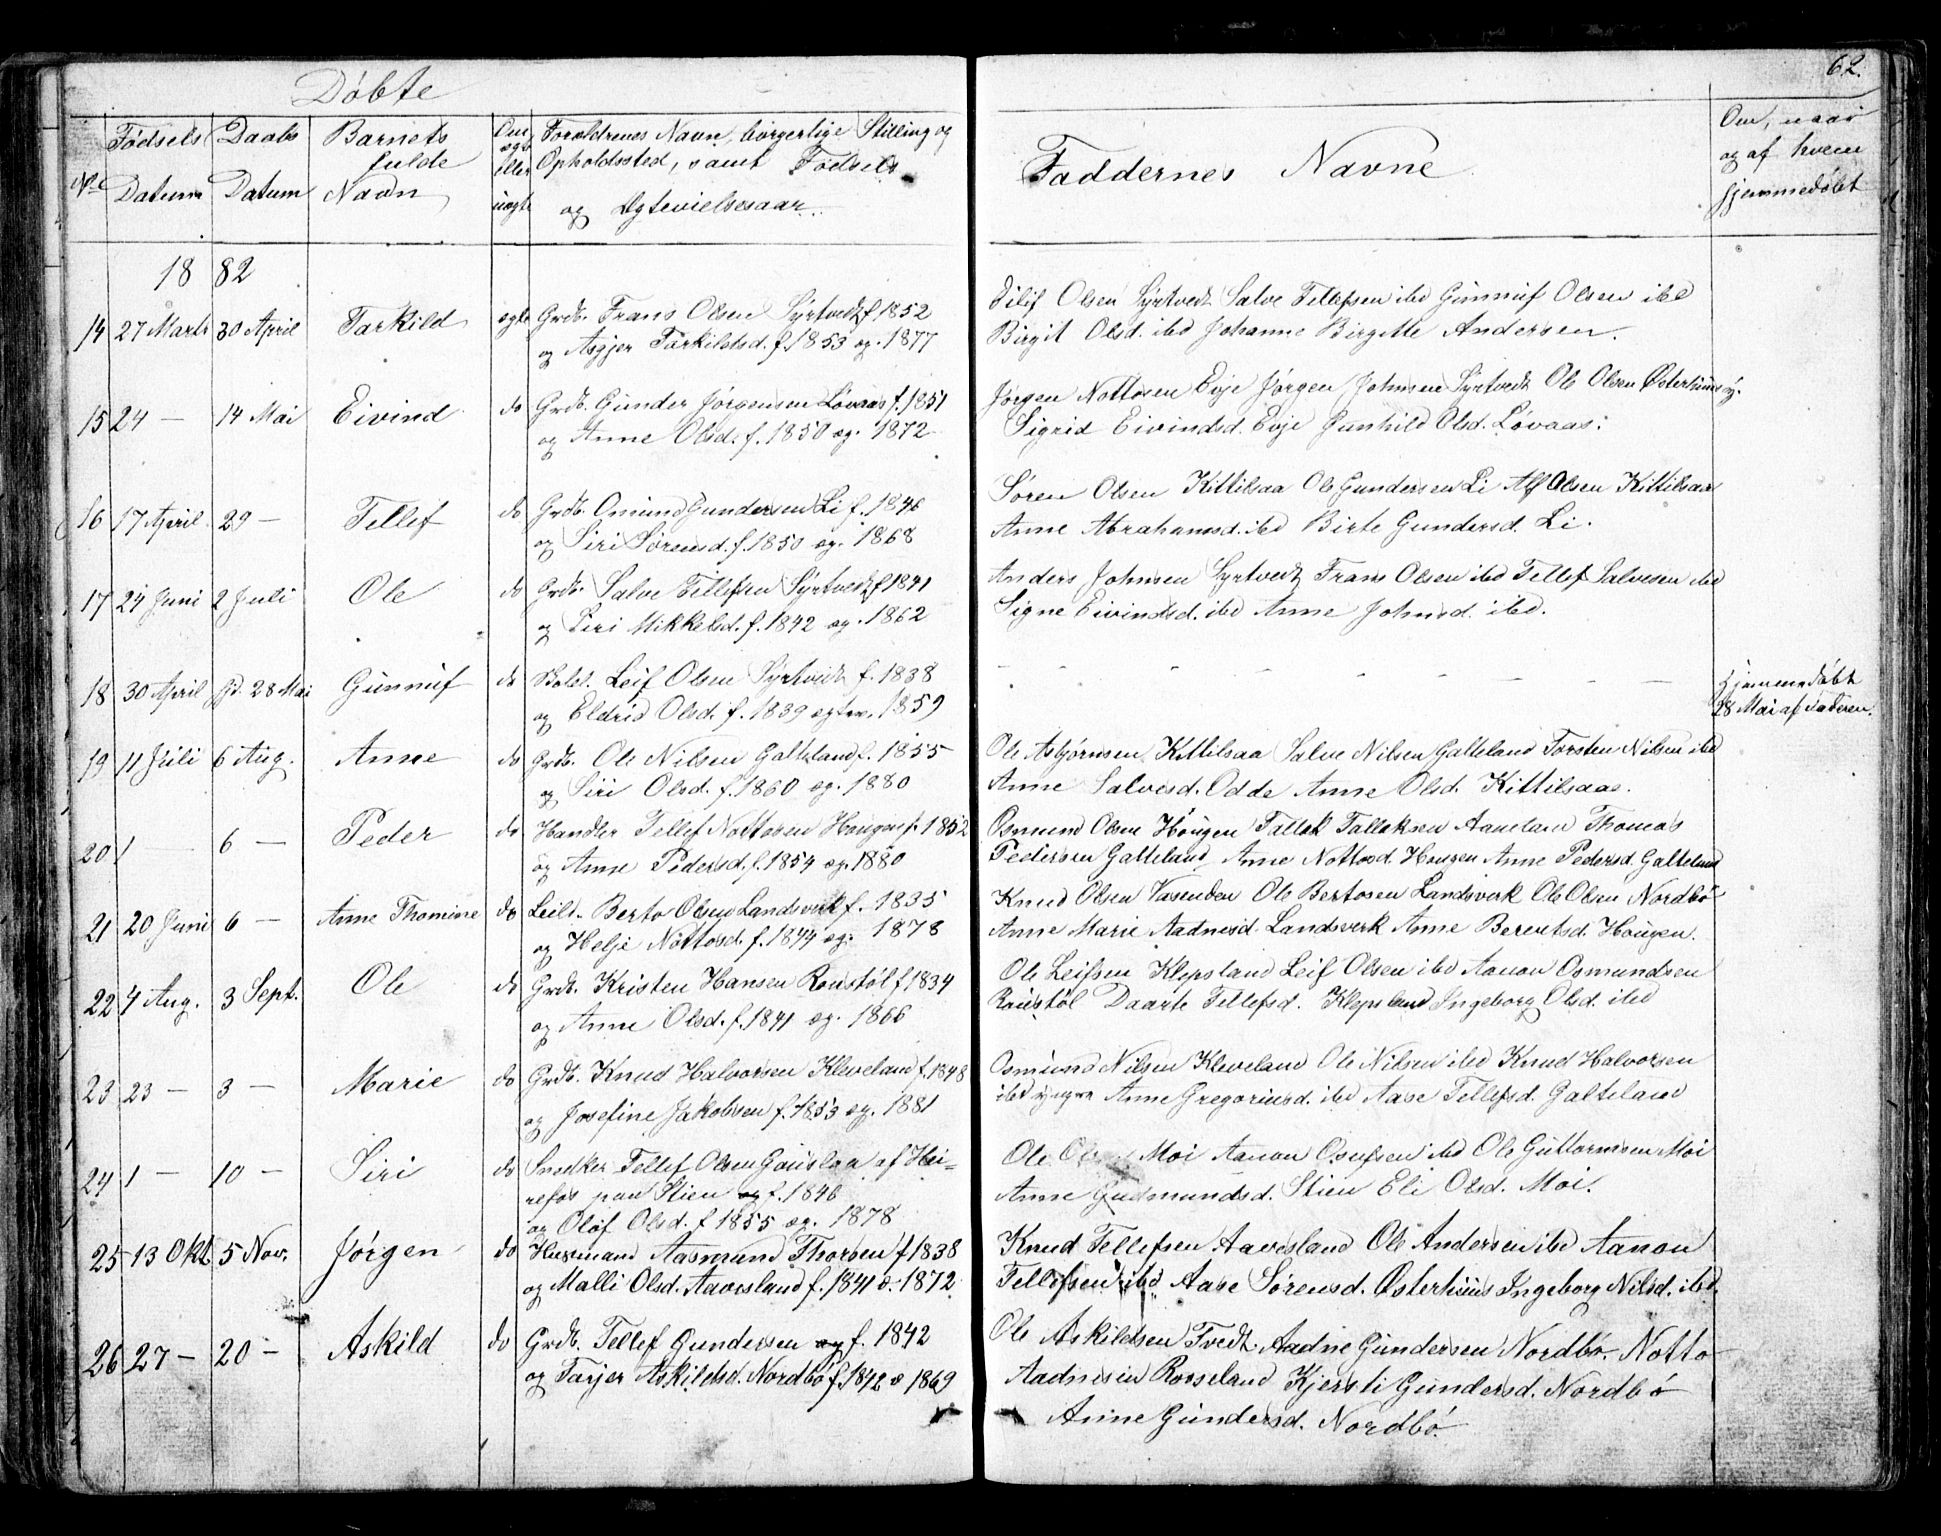 62.
Døbte
No Fødsels Datum Daabs Datum Barnets fulde Navn Om ægte eller uægte Forældrenes Navn, borgerlige Stilling og Opholdssted, samt Fødsels og Ægtevielsesaar. Faddernes Navne Om, naar og af hvem hjemmedøbt
1882
14 27 Marts 30 April Tarkild ægte Grdb. Frans Olsen Syrtvedt f. 1852
og Asgjer Tarkildsd. f. 1853 æg. 1877
Eilif Olsen Syrtvedt Salve Tellefsen ibd Gunnuf Olsen ibd
Birgit Olsd. ibd Johanne Birgitte Andersen.
15 24 — 14 Mai Eivind do Grdb. Gunder Jørgensen Løvaas f. 1851
og Anne Olsd. f. 1850 æg. 1872
Jørgen Nottosen Evje Jørgen Johnsen Syrtvedt Ole Olsen Østerhuus y.
Sigrid Eivindsd. Evje Gunhild Olsd. Løvaas.
16 17 April 29 — Tellef do Grdb. Omund Gundersen Li f. 1846
og Siri Sørensd. f. 1850 æg. 1868
Søren Olsen Kittilsaa Ole Gundersen Li Alf Olsen Kittilsaa
Anne Abrahamsd. ibd Birte Gundersd. Li.
17 24 Juni 2 Juli Ole do Grdb. Salve Tellefsen Syrtvedt f 1841
og Siri Mikkelsd. f. 1842 æg. 1862
Anders Johnsen Syrtvedt Frans Olsen ibd Tellef Salvesen ibd
Signe Eivindsd. ibd Anne Johnsd. ibd.
18 30 April hjd. 28 Mai Gunnuf do Leif Olsen Syrtvedt f. 1838
og Eldrid Olsd. f. 1839 ægtev. 1859
— — — — — — — — — —
Hjemmedøbt
28 Mai af Faderen.
19 11 Juli 6 Aug. Anne do Grdb. Ole Nilsen Galteland f. 1855
og Siri Olsd. f. 1860 æg. 1880
Ole Asbjørnsen Kittilsaa Salve Nilsen Galteland Torsten Nilsen ibd
Anne Salvesd. Odde Anne Olsd. Kittilsaa.
20 1 — 6 — Peder do Handler Tellef Nottosen Hougen f. 1852
og Anne Pedersd. f. 1854 æg. 1880
Osmund Olsen Hougen Tallak Tallaksen Aaneland Thomas
Pedersen Galteland Anne Nottosd. Hougen Anne Pedersd. Galteland
21 20 Juni 6 — Anne Thomine do Leil. Berto Olsen Landsverk f. 1835
og Helje Nottosd. f. 1844 æg. 1878
Knud Olsen Vasenden Ole Bertosen Landsverk Ole Olsen Nordbø
Anne Marie Aadnesd. Landsverk Anne Berentsd. Hougen.
22 4 Aug. 3 Sept. Ole do Grdb. Kristen Hansen Roustøl f 1834
og Anne Olsd. f. 1841 æg. 1866
Ole Leifsen Klepsland Leif Olsen ibd Aanon Osmundsen
Roustøl Daarte Tellefsd. Klepsland Ingeborg Olsd. ibd
23 23 — 3 — Marie do Grdb. Knud Halvorsen Kleveland f. 1848
og Josefine Jakobsen f. 1853 æg. 1881
Osmund Nilsen Kleveland Ole Nilsen ibd Knud Halvorsen
ibd yngre Anne Gregoriusd. ibd Aase Tellefsd. Galteland
24 1 — 10 — Siri do Snedker Tellef Olsen Gauslaa af Hei-
refos paa Stien og f. 1846
og Olöf Olsd. f 1855 æg. 1878
Ole Moi Aanon Osufsen ibd Ole Guttormsen Moi
Anne Gudmundsd. Stien Eli Olsd. Moi.
25 13 Okt. 5 Nov. Jørgen do Husmand Aasmund Thorsen f 1838
og Malli Olsd. Aavesland f. 1841 æ. 1872.
Knud Tellefsen Aavesland Ole Andersen ibd Aanon
Tellefsen ibd Aase Sørensd. Østerhuus Ingeborg Nilsd. ibd.
26 27 — 20 — Askild do Grdb. Tellef Gundersen og f. 1842
og Tarjer Askildsd. Nordbø f. 1842 æ 1869
Ole Askildsen Tvedt Aadne Gundersen Nordbø. Notto
Aadnesen Rosseland Kjersti Gundersd. Nordbø
Anne Gundersd. Nordbø.